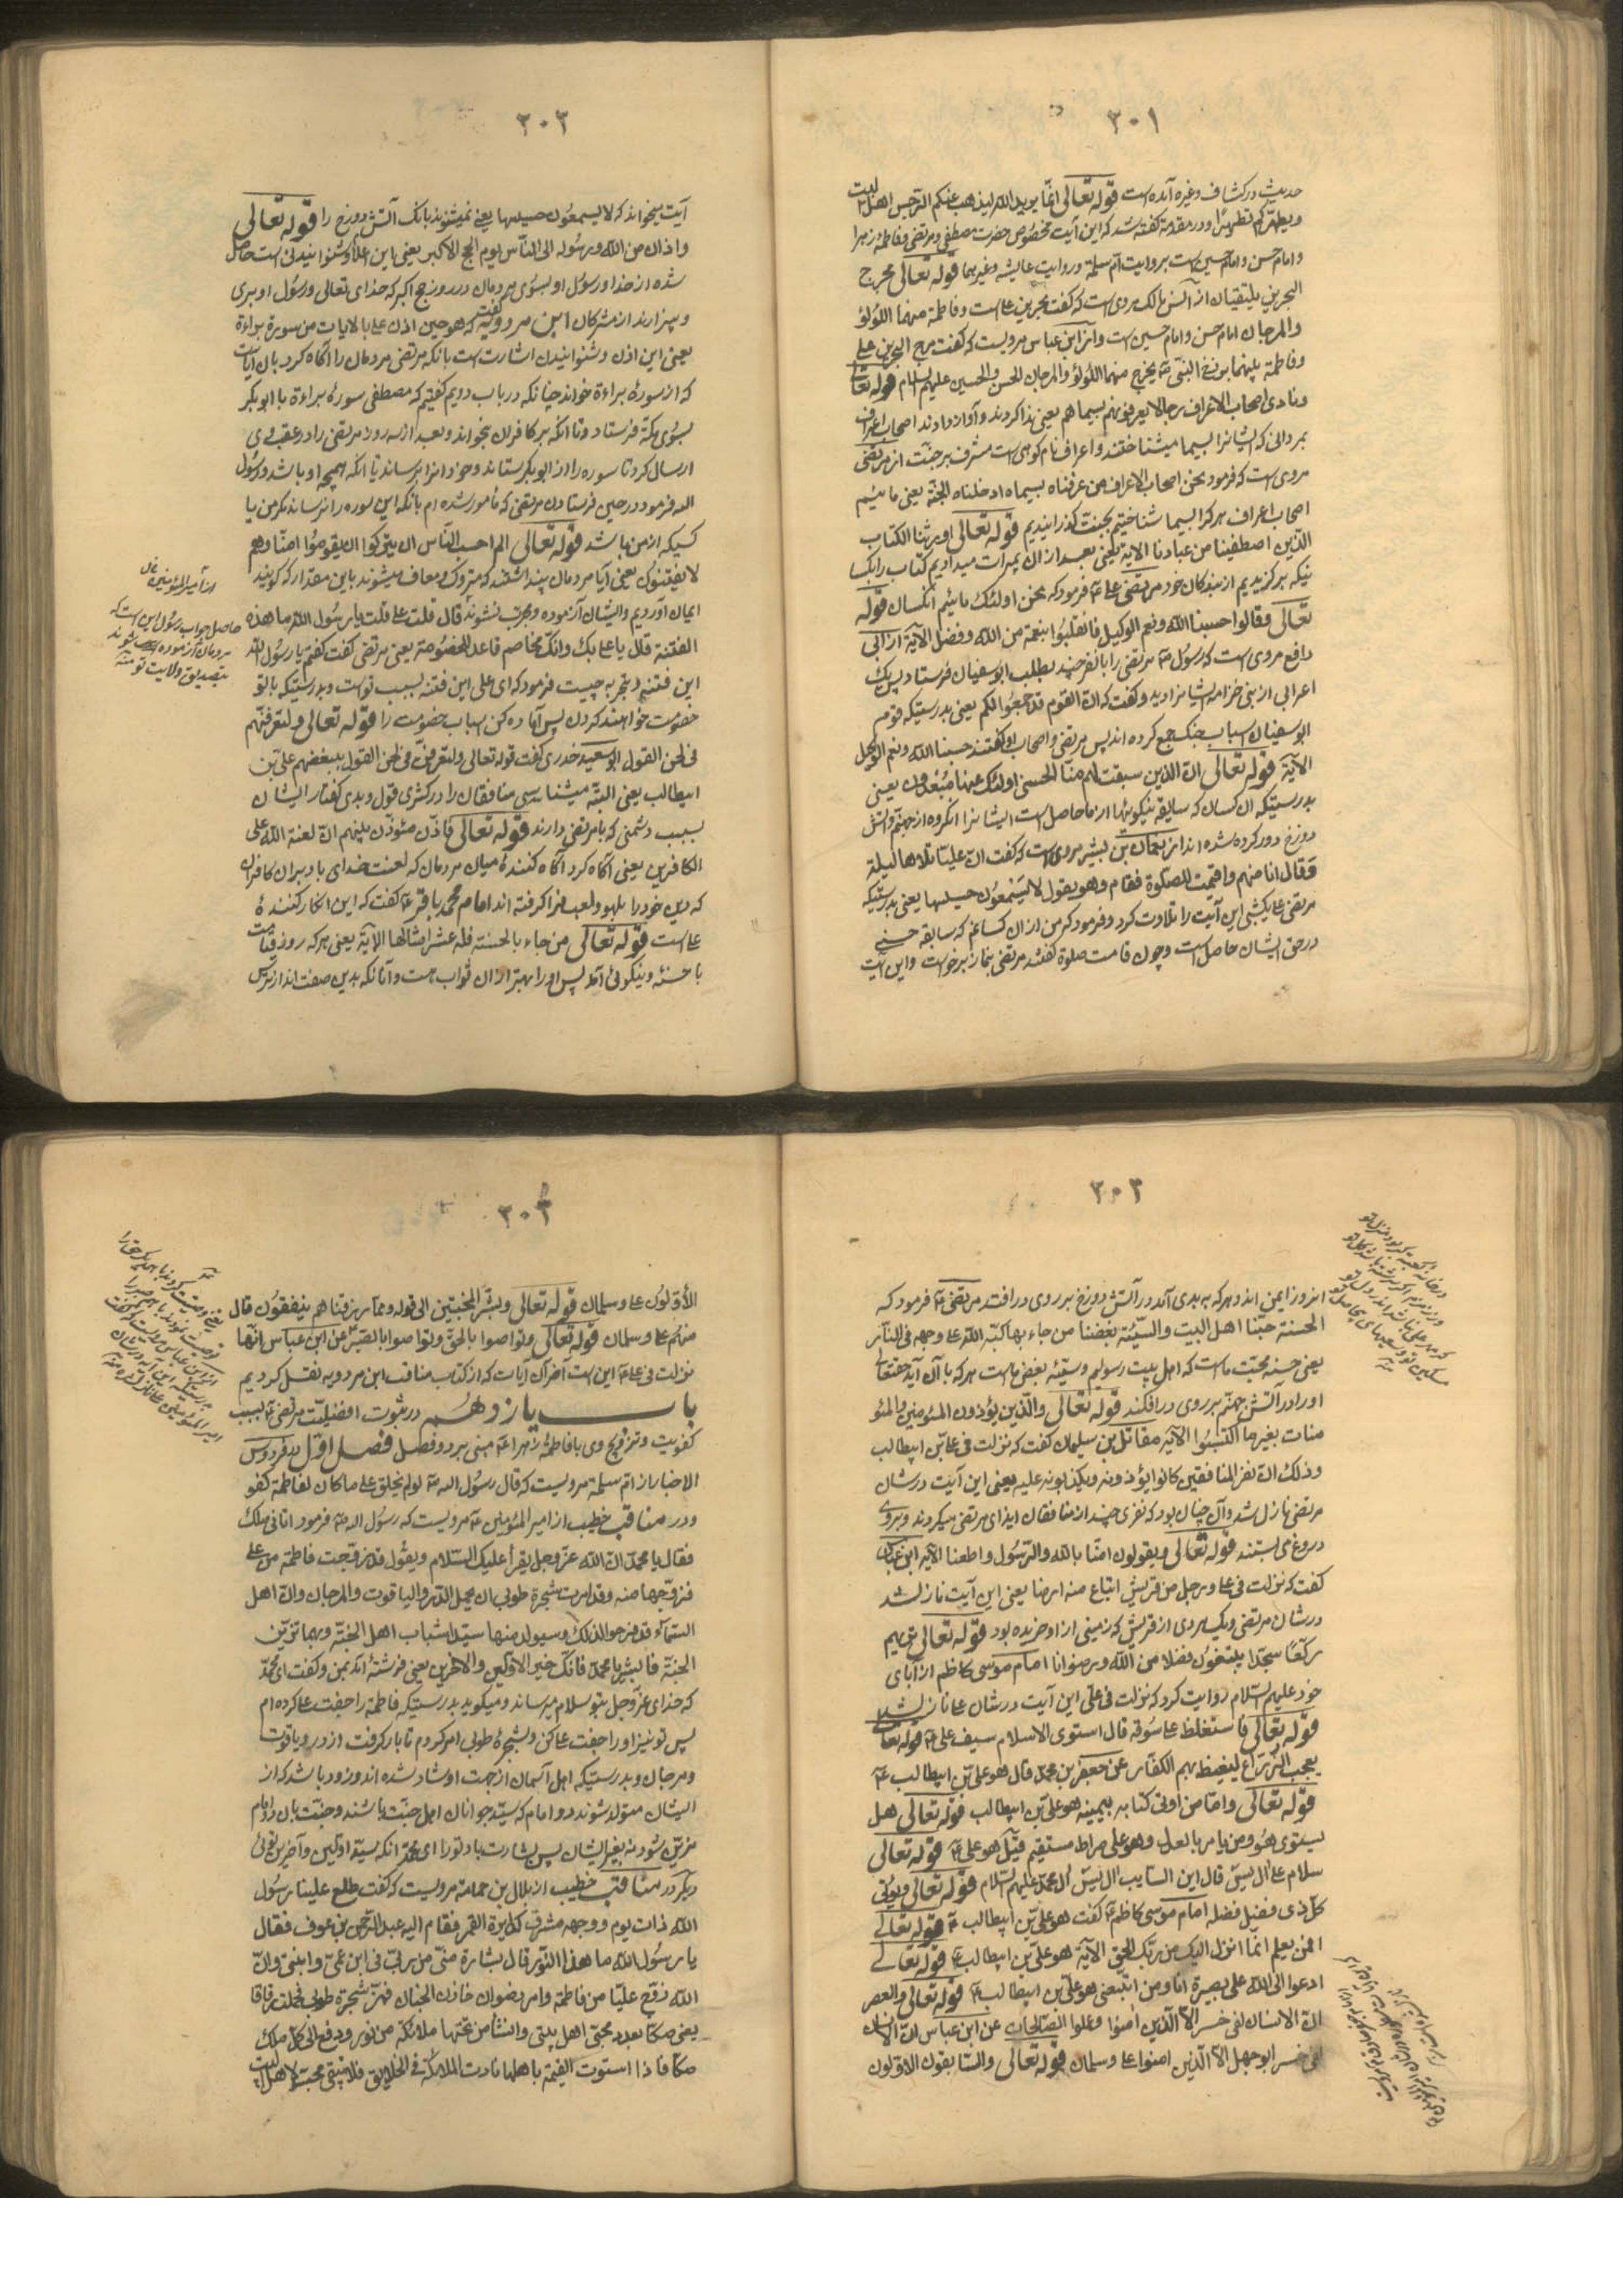 ٣٠١
حدیث در کشاف و غیره آمده است قوله تعالی انما یرید الله لیذهب عنکم الرجس اهل البیت
ویطهرکم تطهیرا و در مقدمة گفته شد که این آیت مخصوص حضرت مصطفی و مرتضی و فاطمهٔ زهرا
و امام حسن و امام حسین است بروایت ام سلمة و روایت عایشه و غیرهما قوله تعالی مرج
البحرین یلتقیان از انس مالک مروی است که گفت بحرین علی است و فاطمة منهما اللؤلؤ
والمرجان امام حسن و امام حسین است و از ابن عباس مرویست که گفت مرج البحرین علی
و فاطمة بینهما برزخ النبی یخرج منهما اللؤلؤ والمرجان الحسن والحسین علیهم السلام قوله تعالی
ونادی اصحاب الاعراف رجالا یعرفونهم بسیماهم یعنی ندا کردند و آواز دادند اصحاب اعراف
بمردانی که ایشانرا بسیما میشناختند و اعراف نام کوهی است مشرف بر جنت از مرتضی
مروی است که فرمود نحن اصحاب الاعراف من عرفناه بسیماه ادخلناه الجنة یعنی ما ئیم
اصحاب اعراف هر کرا بسیما شناختیم بجنت گذرانیدیم قوله تعالی اورثنا الکتاب
الذین اصطفینا من عبادنا الایة یعنی بعد از ان بمیراث میدادیم کتاب را بکسا
نیکه برگزیدیم از بندکان خود مرتضی علی فرمود که نحن اولئک مائیم انکسان قوله
تعالی وقالوا حسبنا الله ونعم الوکیل فانقلبوا بنعمة من الله وفضل الآیة از ابی
رافع مروی است که رسول مرتضی را با نفر چند بطلب ابوسفیان فرستاد پس یک
اعرابی از بنی خزاعه ایشانرا دید و گفت که ان القوم قد جمعوا لکم یعنی بدرستیکه قوم
ابوسفیان اسباب جنک جمع کرده اند پس مرتضی و اصحاب او گفتند حسبنا الله ونعم الوکیل
الآیة قوله تعالی ان الذین سبقت لهم منا الحسنی اولئک عنها مبعدون یعنی
بدرستیکه ان کسان که سابقه نیکوئیها از ما حاصل است ایشانرا انکروه از جهنم و آتش
دوزخ دور کرده شده اند از نعمان بن بشیر مروی است که گفت ان علیا تلاها لیلة
وقال انا منهم واقیمت للصلوة فقام وهو یقول لا یسمعون حسیسها یعنی بدرستیکه
مرتضی علی یکشبی این آیت را تلاوت کرد و فرمود که من از ان کسانم که سابقه حسنی
در حق ایشان حاصل است و چون قامت صلوة گفتند مرتضی بنماز برخواست و این آیت
٣٠٢
آیت میخواند که لا یسمعون حسیسها یعنی نمیشنوند بانک آتش دوزخ را قوله تعالی
واذان من الله ورسوله الی الناس یوم الحج الاکبر یعنی این اعلام و شنوانیدنی است حاصل
شده از خدا و رسول او بسوی مردمان در روز حج اکبر که خدای تعالی و رسول او بری
و بیزارند از مشرکان ابن مردویه گفت که هو حین اذن علی بالایات من سورة براءة
یعنی این اذن و شنوانیدن اشارت است بانکه مرتضی مردمان را آگاه کرد بان آیات
که از سورهٔ براءة خواند چنانکه در باب دویم گفتیم که مصطفی سورهٔ براءة با ابوبکر
بسوی مکة فرستاد و تا انکه بر کافران بخواند و بعد از سه روز مرتضی را در عقب وی
ارسال کرد تا سوره را از ابوبکر بستاند و خود انرا برساند تا انکه همچه او باشد و رسول
الله فرمود در حین فرستادن مرتضی که مامور شده ام بانکه این سوره را نرساند مکر من یا
کسیکه از من باشد قوله تعالی الم احسب الناس ان یترکوا ان یقولوا امنا وهم
لا یفتنون یعنی آیا مردمان پنداشتند که متروک و معاف میشوند باین مقدار که گویند
ایمان آوردیم و ایشان آزموده و مجرب نشوند قال قلت علی قلت یا رسول الله ما هذه
الفتنة قال یا علی بک وانک مخاصم فاعد للخصومة یعنی مرتضی گفت گفتم یا رسول الله
این فتنه و تجربه چیست فرمود که ای علی این فتنه بسبب توست و بدرستیکه با تو
خصومت خواهند کردن پس آماده کن اسباب خصومت را قوله تعالی ولتعرفنهم
فی لحن القول ابو سعید خدری گفت قوله تعالی ولتعرفنهم فی لحن القول ببغضهم علی بن
ابیطالب یعنی البته میشناسی منافقان را در کژی قول و بدی کفتار ایشان
بسبب دشمنی که با مرتضی دارند قوله تعالی فاذن مؤذن بینهم ان لعنة الله علی
الکافرین یعنی آگاه کرد آگاه کنندهٔ میان مردمان که لعنت خدای باد بر ان کافران
که دین خود را بلهو و لعب فرا کرفته اند امام محمد باقر گفت که این آگاه کنندهٔ
علی است قوله تعالی من جاء بالحسنة فله عشر امثالها الآیة یعنی هر که روز قیامت
با حسنه و نیکوئی آمد پس او را بهتر از ان ثواب هست و آنانکه بدین صفت اند از ترس
از امیر المؤمنین علی
حاصل جواب رسول این است که
مردمان آزموده میشوند
بتصدیق ولایت تو منه
٣٠٣
انروز ایمن اند و هر که به بدی آمد در آتش دوزخ بر روی در افتد مرتضی فرمود که
الحسنة حبنا اهل البیت والسیئة بغضنا من جاء بها کبه الله علی وجهه فی النار
یعنی حسنه محبت ماست که اهل بیت رسولیم و سیئه بغض ماست هر که با آن آید حقتعالی
او را در آتش جهنم بر روی در افکند قوله تعالی والذین یؤذون المؤمنین والمؤ
منات بغیر ما اکتسبوا الآیة مقاتل بن سلیمان گفت که نزلت فی علی بن ابیطالب
وذلک ان نفر المنافقین کانوا یؤذونه ویکذبونه علیه یعنی این آیت در شان
مرتضی نازل شد و آن چنان بود که نفری چند از منافقان ایذای مرتضی میکردند و بر وی
دروغ می بستند قوله تعالی ویقولون امنا بالله والرسول واطعنا الآیه ابن عباس
گفت که نزلت فی علی ورجل من قریش ابتاع منه ارضا یعنی این آیت نازل شد
در شان مرتضی و یک مردی از قریش که زمینی از او خریده بود قوله تعالی تریهم
رکعا سجدا یبتغون فضلا من الله ورضوانا امام موسی کاظم از آبای
خود علیهم السلام روایت کرد که نزلت فی علی این آیت در شان علی نازل شد
قوله تعالی فاستغلظ علی سوقه قال استوی الاسلام بسیف علی قوله تعالی
یعجب الزراع لیغیظ بهم الکفار عن جعفر بن محمد قال هو علی بن ابیطالب
قوله تعالی واما من اوتی کتابه بیمینه هو علی بن ابیطالب قوله تعالی هل
یستوی هو ومن یامر بالعدل وهو علی صراط مستقیم قیل هو علی قوله تعالی
سلام علی ال یس قال ابن السایب ال یس ال محمد علیهم السلام قوله تعالی ویؤتی
کل ذی فضل فضله امام موسی کاظم گفت هو علی بن ابیطالب قوله تعالی
افمن یعلم انما انزل الیک من ربک الحق الآیة هو علی بن ابیطالب قوله تعالی
ادعوا الی الله علی بصیرة انا ومن اتبعنی هو علی بن ابیطالب قوله تعالی والعصر
ان الانسان لفی خسر الا الذین امنوا وعملوا الصالحات عن ابن عباس ان الانسان
لفی خسر ابو جهل الا الذین امنوا علی وسلمان قوله تعالی والسابقون الاولون
٣٠٤
الاولون علی وسلمان قوله تعالی وبشر المخبتین الی قوله ومما رزقناهم ینفقون قال
منهم علی وسلمان قوله تعالی وتواصوا بالحق وتواصوا بالصبر عن ابن عباس انها
نزلت فی علی این است آخر ان آیات که از کتاب مناقب ابن مردویه نقل کردیم
باب یازدهم در ثبوت افضلیت مرتضی بسبب
کفویت و تزویج وی با فاطمهٔ زهرا مبنی بر دو فصل فصل اول در فردوس
الاخبار از ام سلمة مرویست که قال رسول الله لو لم یخلق علی ما کان لفاطمة کفو
و در مناقب خطیب از امیر المؤمنین مرویست که رسول الله فرمود اتانی ملک
فقال یا محمد ان الله عز وجل یقرأ علیک السلام ویقول قد زوجت فاطمة من علی
فزوجها منه وقد امرت شجرة طوبی ان تحمل الدر والیاقوت والمرجان وان اهل
السماء قد فرحوا لذلک وسیولد منها سیدا شباب اهل الجنة وبهما تزین
الجنة فابشر یا محمد فانک خیر الاولین والاخرین یعنی فرشتهٔ آمد بمن و گفت ای محمد
که خدای عز وجل بتو سلام میرساند و میکوید بدرستیکه فاطمه را جفت علی کرده ام
پس تو نیز او را جفت علی کن و شجرهٔ طوبی امر کردم تا بار کرفت از در و یاقوت
و مرجان و بدرستیکه اهل آسمان از جهت او شاد شده اند و زود باشد که از
ایشان متولد شوند دو امام که سید جوانان اهل جنت باشند و جنت بان دو امام
مزین شود نه بغیر ایشان پس بشارت باد تو را ای محمد انکه سید اولین و آخرین توئی
دیکر در مناقب خطیب از بلال بن حمامة مرویست که گفت طلع علینا رسول
الله ذات یوم ووجهه مشرق کدایرة القمر فقام الیه عبد الرحمن بن عوف فقال
یا رسول الله ما هذا النور قال بشارة منی من ربی فی ابن عمی وابنتی وان
الله زوج علیا من فاطمة وامر رضوان خازن الجنان فهز شجرة طوبی فحملت رقاقا
یعنی صکا بعدد محبی اهل بیتی وانشأ من تحتها ملائکة من نور ودفع الی کل ملک
صکا فاذا استوت القیمة باهلها نادت الملائکة فی الخلایق فلا تبقی محب لاهل البیت